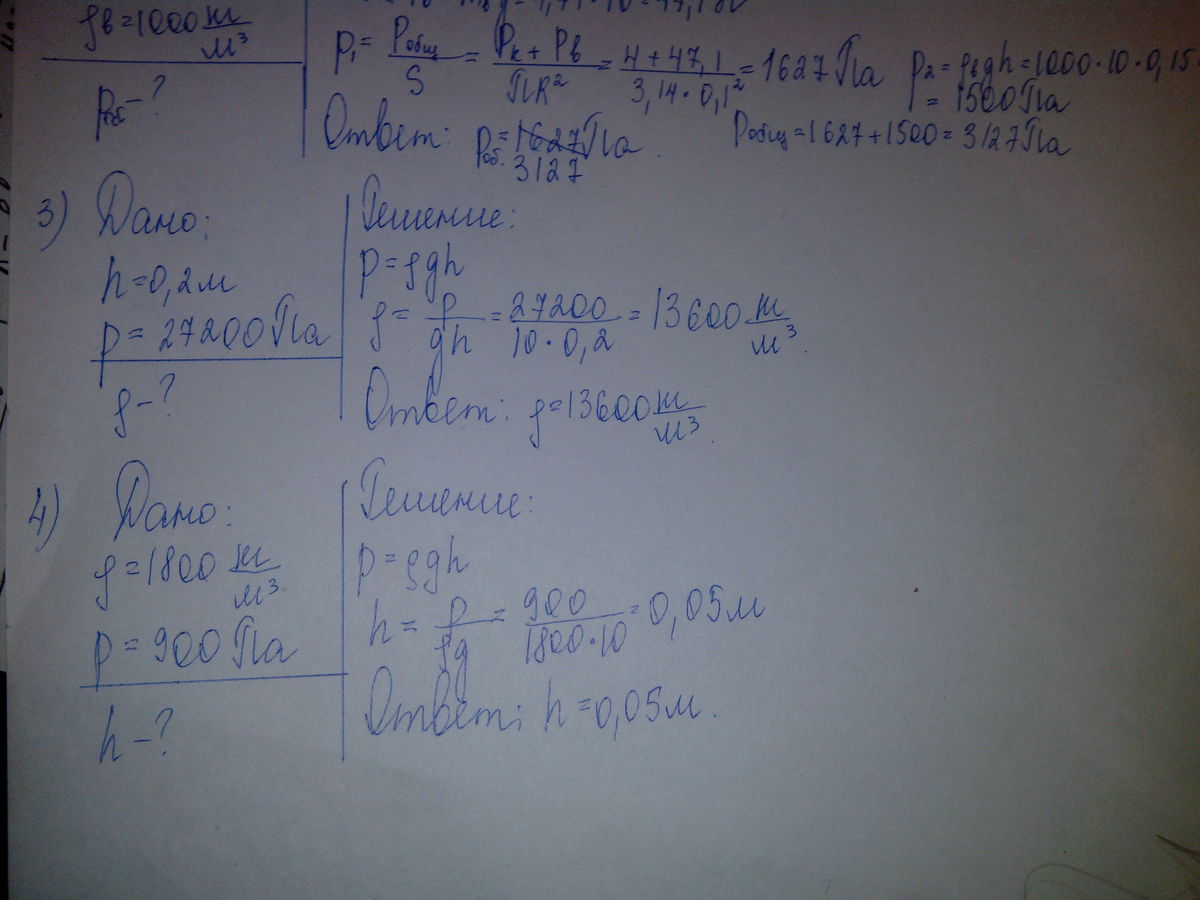 ρв=1000 кг/м³
Pоб-?
p₁= Pобщ/S = (Pк + Pв)/ПR² = (4+47,1)/(3,14·0,1²) = 1627 Па
p₂= ρвgh=1000·10·0,15
= 1500 Па
Ответ: Pоб.=1627 Па.
3127
Pобщ=1627+1500= 3127 Па
3) Дано:
h=0,2м
p= 27200 Па
ρ-?
Решение:
p=ρgh
ρ= p/gh = 27200/(10·0,2) = 13600 кг/м³.
Ответ: ρ=13600 кг/м³.
4) Дано:
ρ=1800 кг/м³
p=900 Па
h-?
Решение:
p=ρgh
h= p/ρg = 900/(1800·10) = 0,05м
Ответ: h=0,05м.